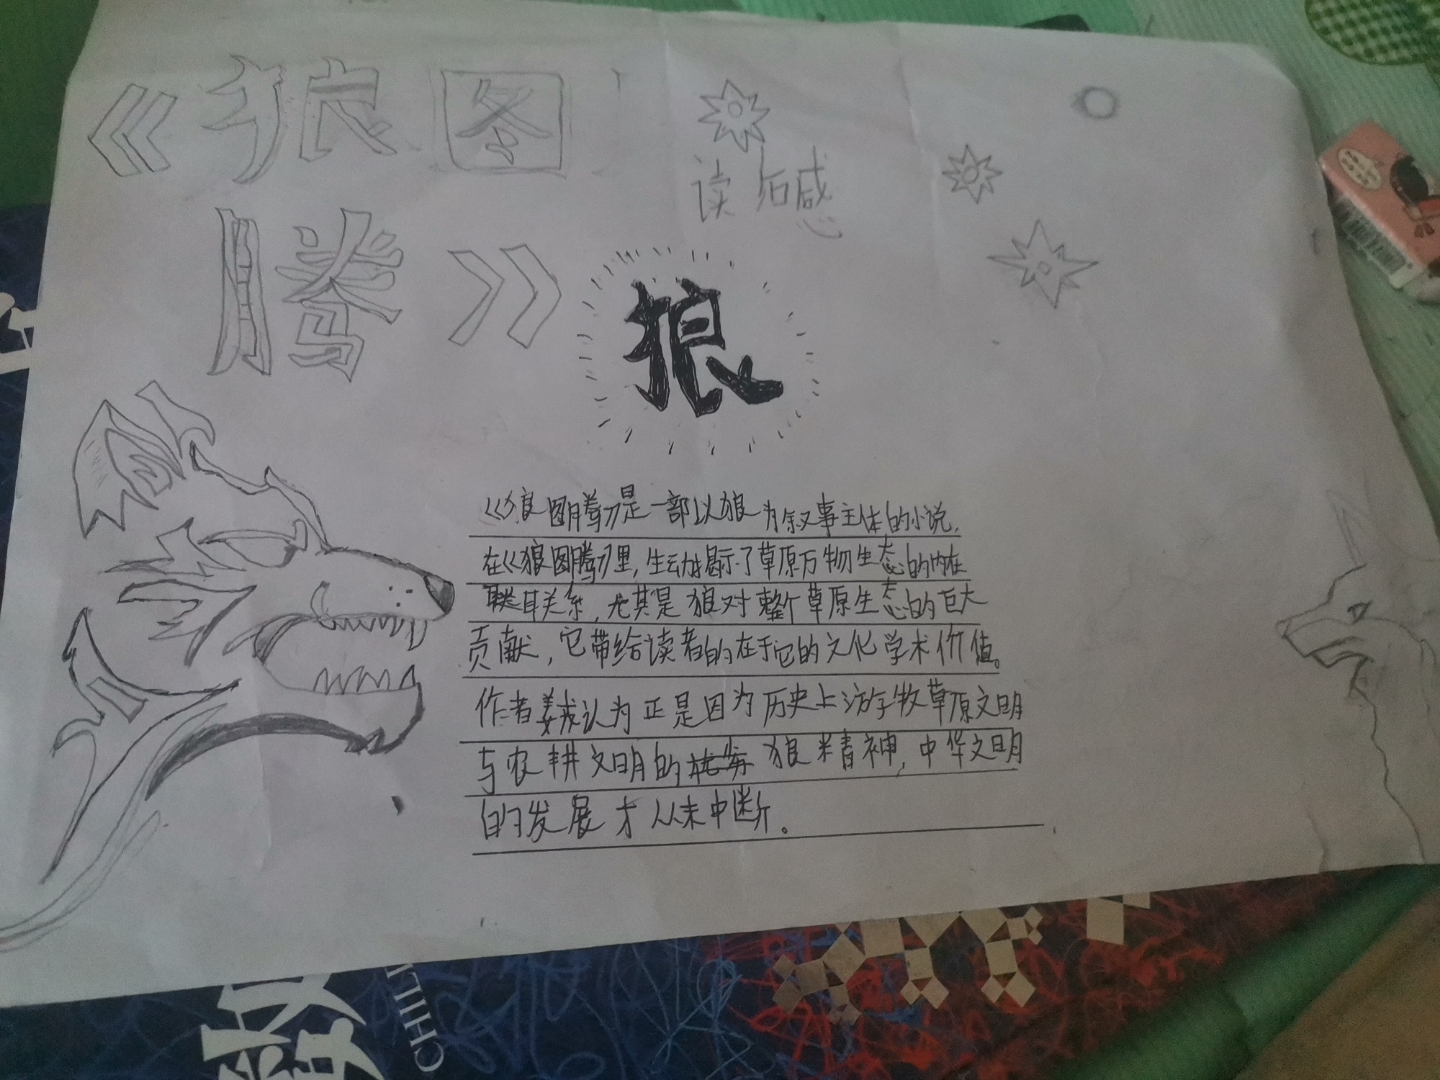 《狼图
腾》
读后感
狼
《狼图腾》是一部以狼为叙事主体的小说,
在《狼图腾》里,生动揭示了草原万物生态的内在
联关系,尤其是狼对整个草原生态的巨大
贡献,它带给读者的在于它的文化学术价值。
作者姜戎认为正是因为历史上游牧草原文明
与农耕文明的 狼精神,中华文明
的发展才从未中断。
CHIL